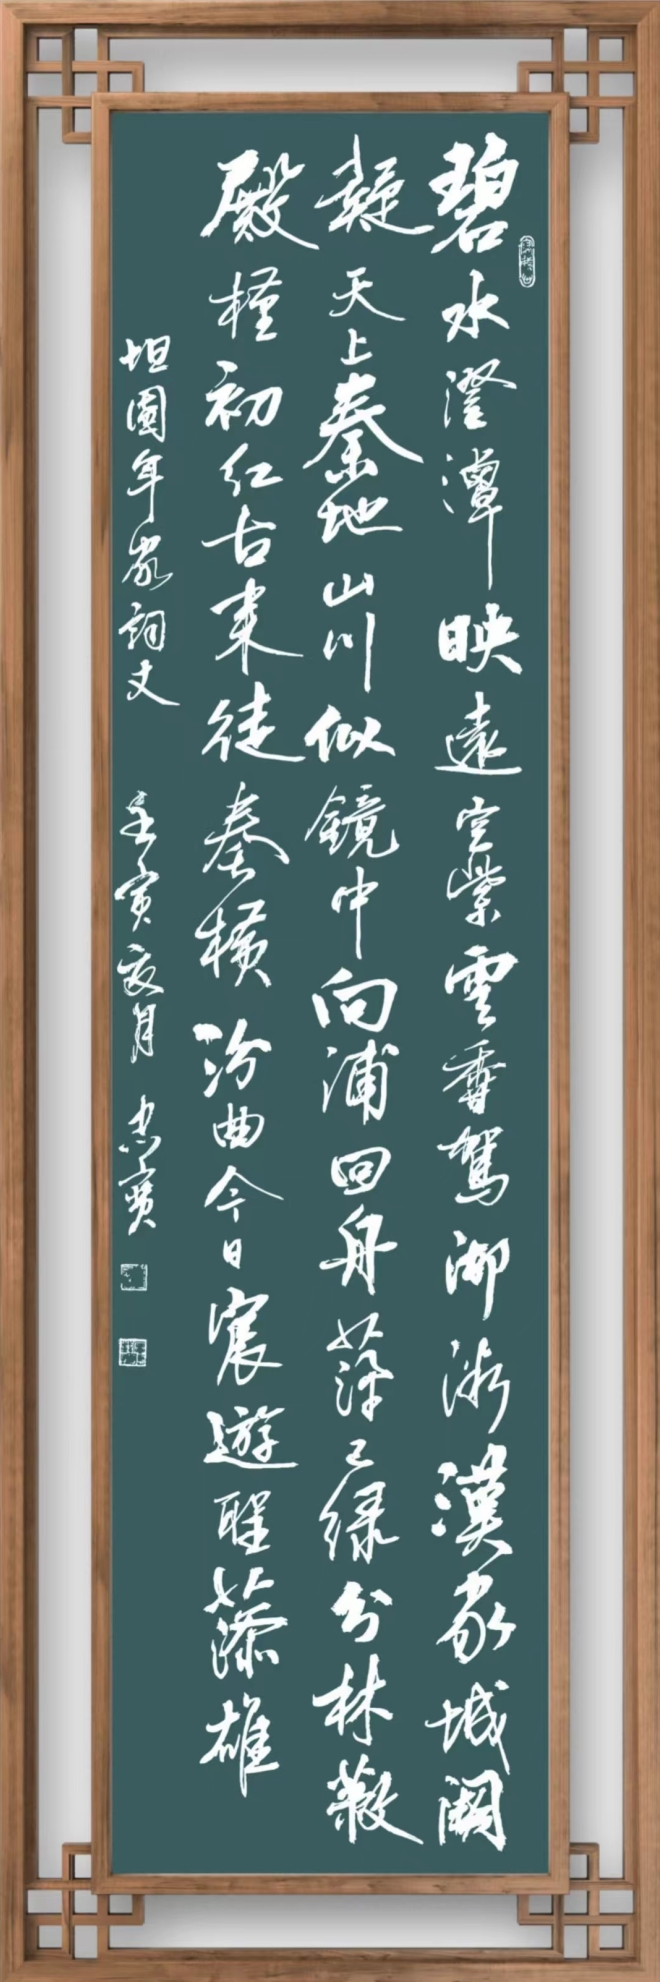 碧水澄潭映遠空紫雲香駕御微漢家城闕
疑天上秦地山川似鏡中向浦回舟萍已綠分林蔽
殿槿初紅古来徒奏横汾曲今日宸遊聖藻雄
坦園年家詞丈 壬寅亥月 忠寶